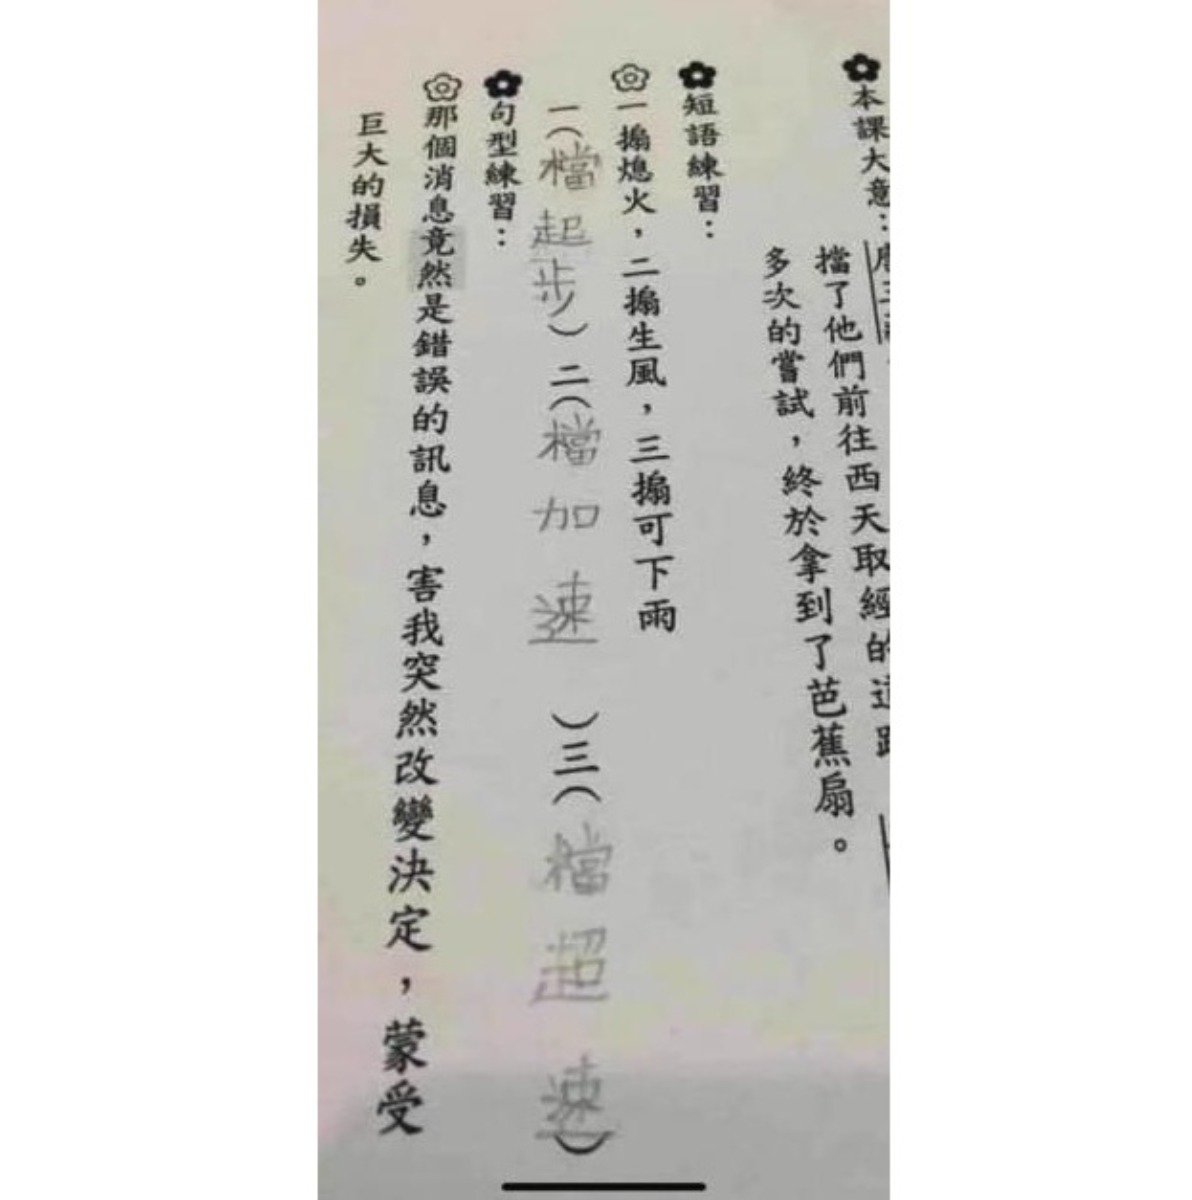 本課大意：
擋了他們前往西天取經的道路
多次的嘗試，終於拿到了芭蕉扇。
短語練習：
一搧熄火，二搧生風，三搧可下雨
一（檔起步）二（檔加速）三（檔超速）
句型練習：
那個消息竟然是錯誤的訊息，害我突然改變決定，蒙受
巨大的損失。